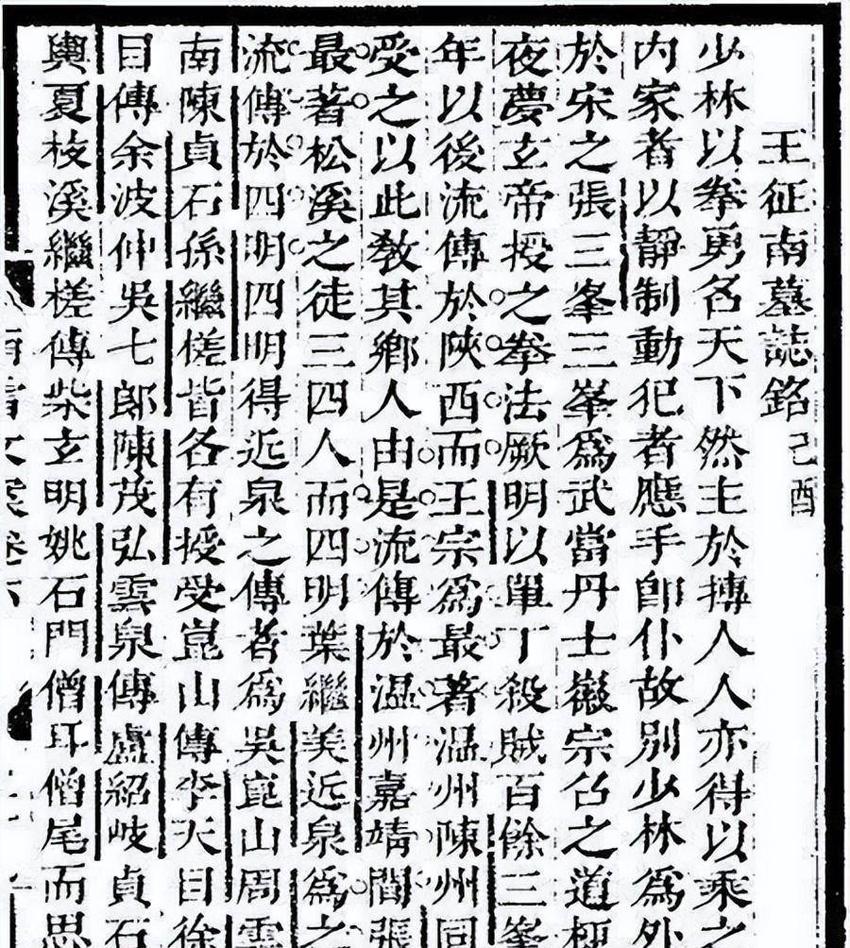 王征南墓誌銘己酉
少林以拳勇名天下然主於搏人人亦得以乘之
內家者以靜制動犯者應手卽仆故別少林爲外
於宋之張三峯三峯爲武當丹士徽宗召之道梗
夜夢玄帝授之拳法厥明以單丁殺賊百餘三峯
年以後流傳於陝西而王宗爲最著溫州陳州同
受之以此敎其鄉人由是流傳於溫州嘉靖間張
最著松溪之徒三四人而四明葉繼美近泉爲之
流傳於四明四明得近泉之傳者爲吳崑山周雲
南陳貞石孫繼槎皆各有授受崑山傳李天目徐
目傳余波仲吳七郞陳茂弘雲泉傳盧紹岐貞石
輿夏枝溪繼槎傳柴玄明姚石門僧耳僧尾而思